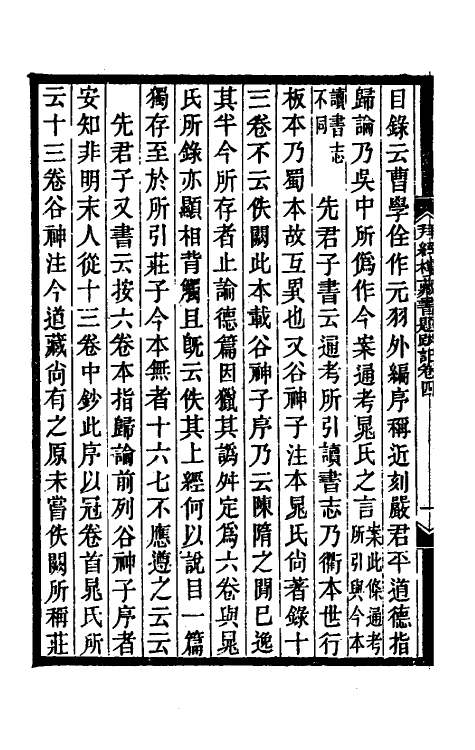 目錄云曹學佺作元羽外編序稱近刻嚴君平道德指
歸論乃吳中所僞作今案通考晁氏之言案此條通考所引與今本
讀書志不同　先君子書云通考所引讀書志乃衢本世行
板本乃蜀本故互異也又谷神子注本晁氏尚著錄十
三卷不云佚闕此本載谷神子序乃云陳隋之閒已逸
其半今所存者止論德篇因獵其譌舛定爲六卷與晁
氏所錄亦顯相背觸且旣云佚其上經何以說目一篇
獨存至於所引莊子今本無者十六七不應遵之云云
先君子又書云按六卷本指歸論前列谷神子序者
安知非明末人從十三卷中鈔此序以冠卷首晁氏所
云十三卷谷神注今道藏尚有之原未嘗佚闕所稱莊
拜經樓藏書題跋記卷四
一